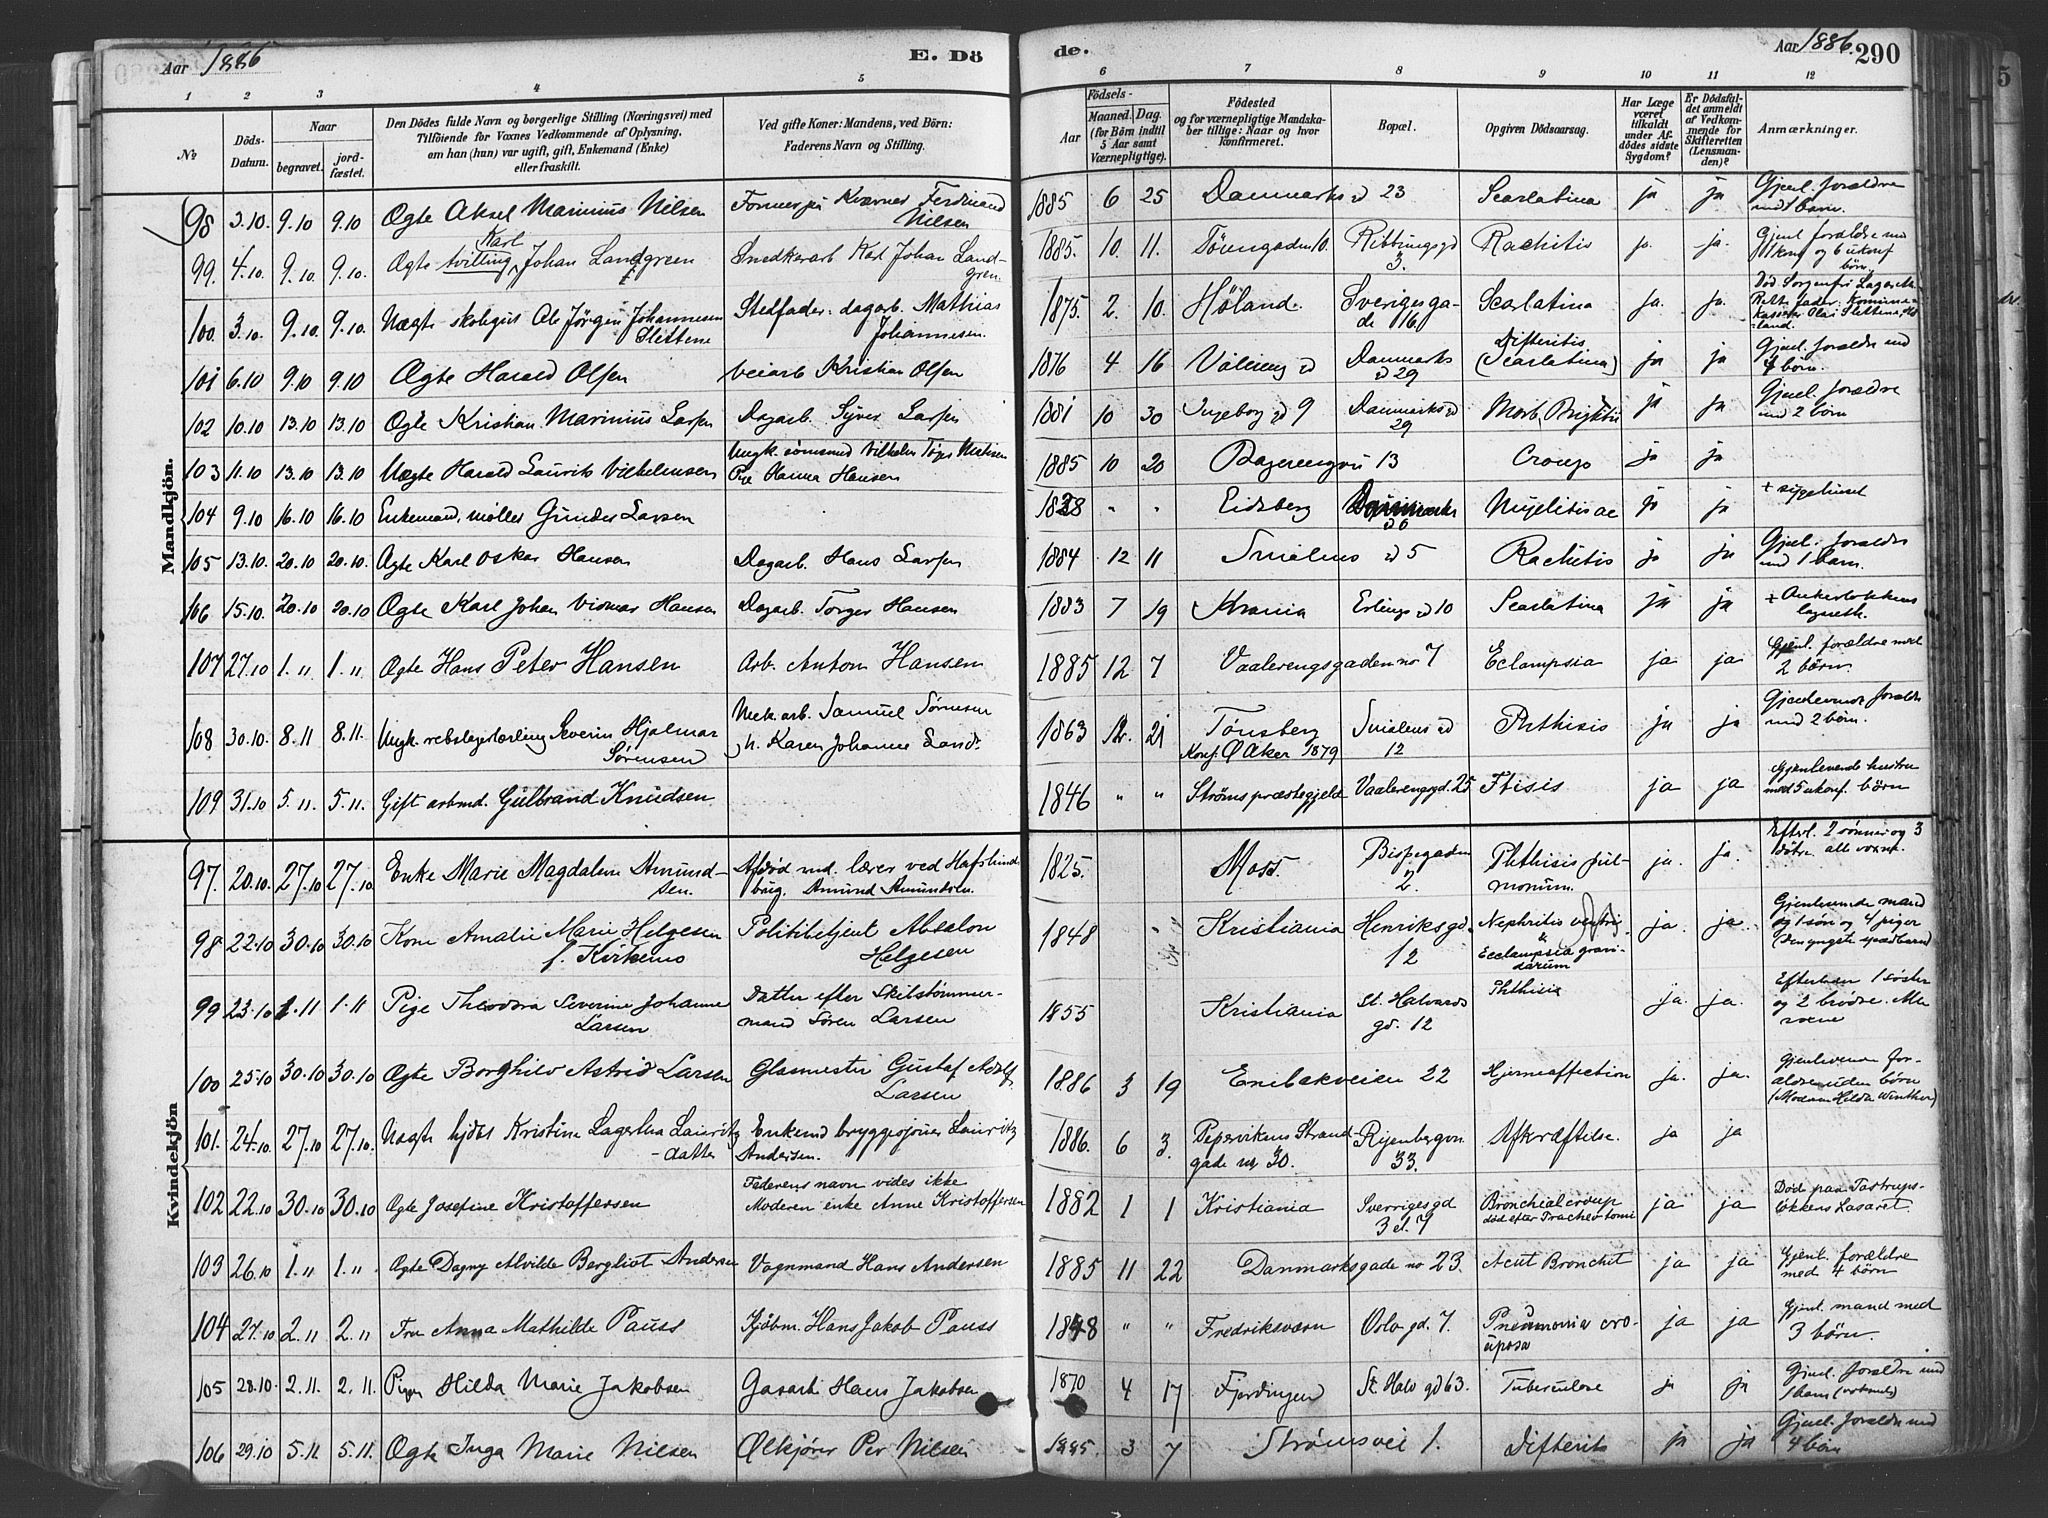 Aar 1886
E. Dö
de.
Aar 1886.
290
1 2 3 4 5 6 7 8 9 10 11 12
№
Döds-
Datum.
Naar
begravet.
jord-
fæstet.
Den Dödes fulde Navn og borgerlige Stilling (Næringsvei) med
Tilföiende for Voxnes Vedkommende af Oplysning,
om han (hun) var ugift, gift, Enkemand (Enke)
eller fraskilt.
Ved gifte Koner: Mandens, ved Börn:
Faderens Navn og Stilling.
Födsels-
Aar
Maaned.
Dag.
(for Börn indtil
5 Aar samt
Værnepligtige).
Födested
og for værnepligtige Mandska-
ber tillige: Naar og hvor
konfirmeret.
Bopæl.
Opgiven Dödsaarsag.
Har Læge
været
tilkaldt
under Af-
dödes sidste
Sygdom?
Er Dödsfal-
det anmeldt
af Vedkom-
mende for
Skifteretten
(Lensman-
den)?
Anmærkninger.
Mandkjön.
98 3.10. 9.10 9.10 Ægte Aksel Marinius Nilsen Ferdinand Nilsen 1885 6 25 Danmarksgd 23 Scarlatina ja ja Gjenl. forældre med 1 barn.
99. 4.10. 9.10. 9.10. Ægte tvilling Karl Johan Landgreen Snedkerarb Karl Johan Land-
gren. 1885. 10. 11. 10. 3. Rachitis ja. ja. Gjenl forældre med 1 konf og 6 ukonf børn.
100. 3.10. 9.10 9.10. Uægte skolegut Ole Jörgen Johannesen Slettene Stedfader: dagarb. Mathias Johannesen. 1875. 2. 10. Höland. Sverigesga-
de 16 Scarlatina ja. ja.
101 6.10 9.10 9.10 Ægte Harald Olsen Veiarb Kristian Olsen 1876 4 16 Danmarks
gd 29 Difteritis
(Scarlatina) ja ja Gjenl. forældre med
4 børn.
102 10.10 13.10 13.10 Ægte Kristian Marinius Larsen Dagarb. Syver Larsen 1881 10 30 Ingeborg gd 9 Danmarksgd
29 Morb. Brightii ja ja Gjenl. forældre
med 2 børn
103 11.10 13.10 13.10 Uægte Harald Laurits Vilhelmsen Pige Hanna Hansen 1885 10 20 13 Croup ja ja
104 9.10 16.10 16.10 Enkemand, møller Gunder Larsen 1828 " " Eidsberg Danmarks
gd 6 ja ja + sygehuset
105 13.10. 20.10 20.10. Ægte Karl Oskar Hansen Dagarb. Hans Larsen 1884 12 11 Smalens gd 5 Rachitis ja ja Gjenl. forældre
med 1 barn.
106 15.10. 20.10 20.10 Ægte Karl Johan Vismar Hansen Dagarb. Torger Hansen 1883 7 19 Krania Erlings gd 10 Scarlatina ja ja + Ankerløkkens
107 27.10 1.11 1.11 Ægte Hans Peter Hansen Arb. Anton Hansen 1885 12 7 Vaalerengsgaden no 7 Eclampsia ja ja Gjenl. forældre med
2 børn.
108 30.10. 8.11 8.11. Ungk. rebslagerlærling Severin Hjalmar
Sörensen h. Karen Johanne 1863 12. 21 Tönsberg
Konf. Ø Aker 1879 Smalens gd
12 Phthisis ja ja Gjenlevende foreldre
med 2 børn.
109 31.10 5.11. 5.11. Gift arbmd. Gulbrand Knudsen 1846 " " Ströms præstegjeld Vaalerengsgd. 25 Ftisis ja ja Gjenlevende hustru
med 5 ukonf. børn
Kvindekjön
97. 20.10. 27.10 27.10. Enke Marie Magdalene Amund-
sen. Afdöd md. lærer ved Hafslund
brug. Amund Amundsen. 1825. Moss. Bispegaden
2. Phthisis pul-
monum. ja. ja. Efterl. 2 sönner og 3
døtre. alle voxne.
98 22.10 30.10 30.10 Kone Amalie Marie Helgesen
f. Kirkemo Politibetjent Absalon
Helgesen 1848 " Kristiania Henriksgd.
12 Nephritis
&
Ecclampsia gravi-
darum ja. ja. Gjenlevende mand
og 1 søn og 4 piger
(den yngste spædbarn)
99 23.10 1.11 1.11 Pige Theodora Severine Johanne
Larsen Datter efter Skibstömmer-
mand Sören Larsen 1855 Kristiania St. Halvards
gd. 12 Phthisis ja. ja. 1 söster
og 2 brödre. Alle
voxne
100 25.10 30.10 30.10 Ægte Borghild Astrid Larsen Glasmester Gustaf Adolf
Larsen 1886 3 19 Enebakveien 22 Hjerneaffection ja. ja. Gjenlevende for-
ældre uden børn
(Madam Hilda Winther)
101. 24.10. 27.10 27.10. Uægte hjdøs Kristine Lagertha Lauritz
-datter Enkemd bryggesjouer Lauritz
Andersen. 1886. 6 3. Pepervikens Strand-
gade nr 30. Ryenbergvn
33. Afkræftelse. ja ja
102 22.10 30.10 30.10 Ægte Josefine Kristoffersen Faderens navn vides ikke
Moderen enke Anne Kristoffersen 1882 1 1 Kristiania Sverrigesgd
3 el. 7 Bronchial croup
död efter Tracheotomi ja ja Död paa Tostrups-
løkkens Lasaret.
103 26.10 1.11 1.11 Ægte Dagny Alvilde Bergliot Andersen Vognmand Hans Andersen 1885 11 22 Danmarksgade no 23. Acut Bronchit ja ja Gjenl. forældre
med 4 børn
104 27.10 2.11 2.11 Fru Anna Mathilde Pauss Kjöbm. Hans Jakob Pauss 1848 " " Fredriksværn Oslo gd. 7. Pneumonia cro-
uposa ja ja Gjenl. mand med
3 börn.
105 28.10. 2.11. 2.11. Pigen Hilda Marie Jakobsen Gasarb Hans Jakobsen 1870 4 17 Fjerdingen St. Halv gd 63. Tuberculose ja ja Gjenl. forældre med
1 barn (voksent)
106 29.10 5.11. 5.11. Ægte Inga Marie Nilsen Ølkjører Per Nilsen 1885. 3 7 Strömsvei 1. Difterit ja ja Gjenl. forældre med
4 børn